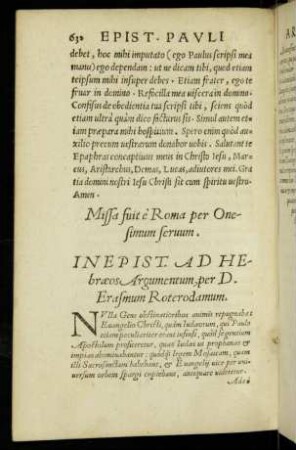 632 EPIST. PAVLI
debet, hoc mihi imputato (ego Paulus scripsi mea
manu) ego dependam: ut ne dicam tibi, quod etiam
teipsum mihi insuper debes. Etiam frater, ego te
fruar in domino. Refocilla mea uiscera in domino.
Confisus de obedientia tua scripsi tibi, sciens quòd
etiam ultra quàm dico facturus sis. Simul autem et
iam præpara mihi hospitium. Spero enim quòd au
xilio precum uestrarum donabor uobis. Salutant te
Epaphras concaptiuus meus in Christo Iesu, Mar
cus, Aristarchus, Demas, Lucas, adiutores mei. Gra
tia domini nostri Iesu Christi sit cum spiritu uestro.
Amen.
Missa fuit è Roma per One
simum seruum.
IN EPIST. AD HE
bræos Argumentum, per D.
Erasmum Roterodamum.
NVlla Gens obstinatioribus animis repugnabat
Euangelio Christi, quàm Iudæorum, qui Paulo
etiam peculiariter erant infensi, quòd se gentium
Apostolum profiteretur, quas Iudæi ut prophanas et
impias abominabantur: quòdque legem Mosaicam, quam
illi Sacrosanctam habebant, et Euangelij uice per uni
uersum orbem spargi cupiebant, antiquare uideretur.
Adeò